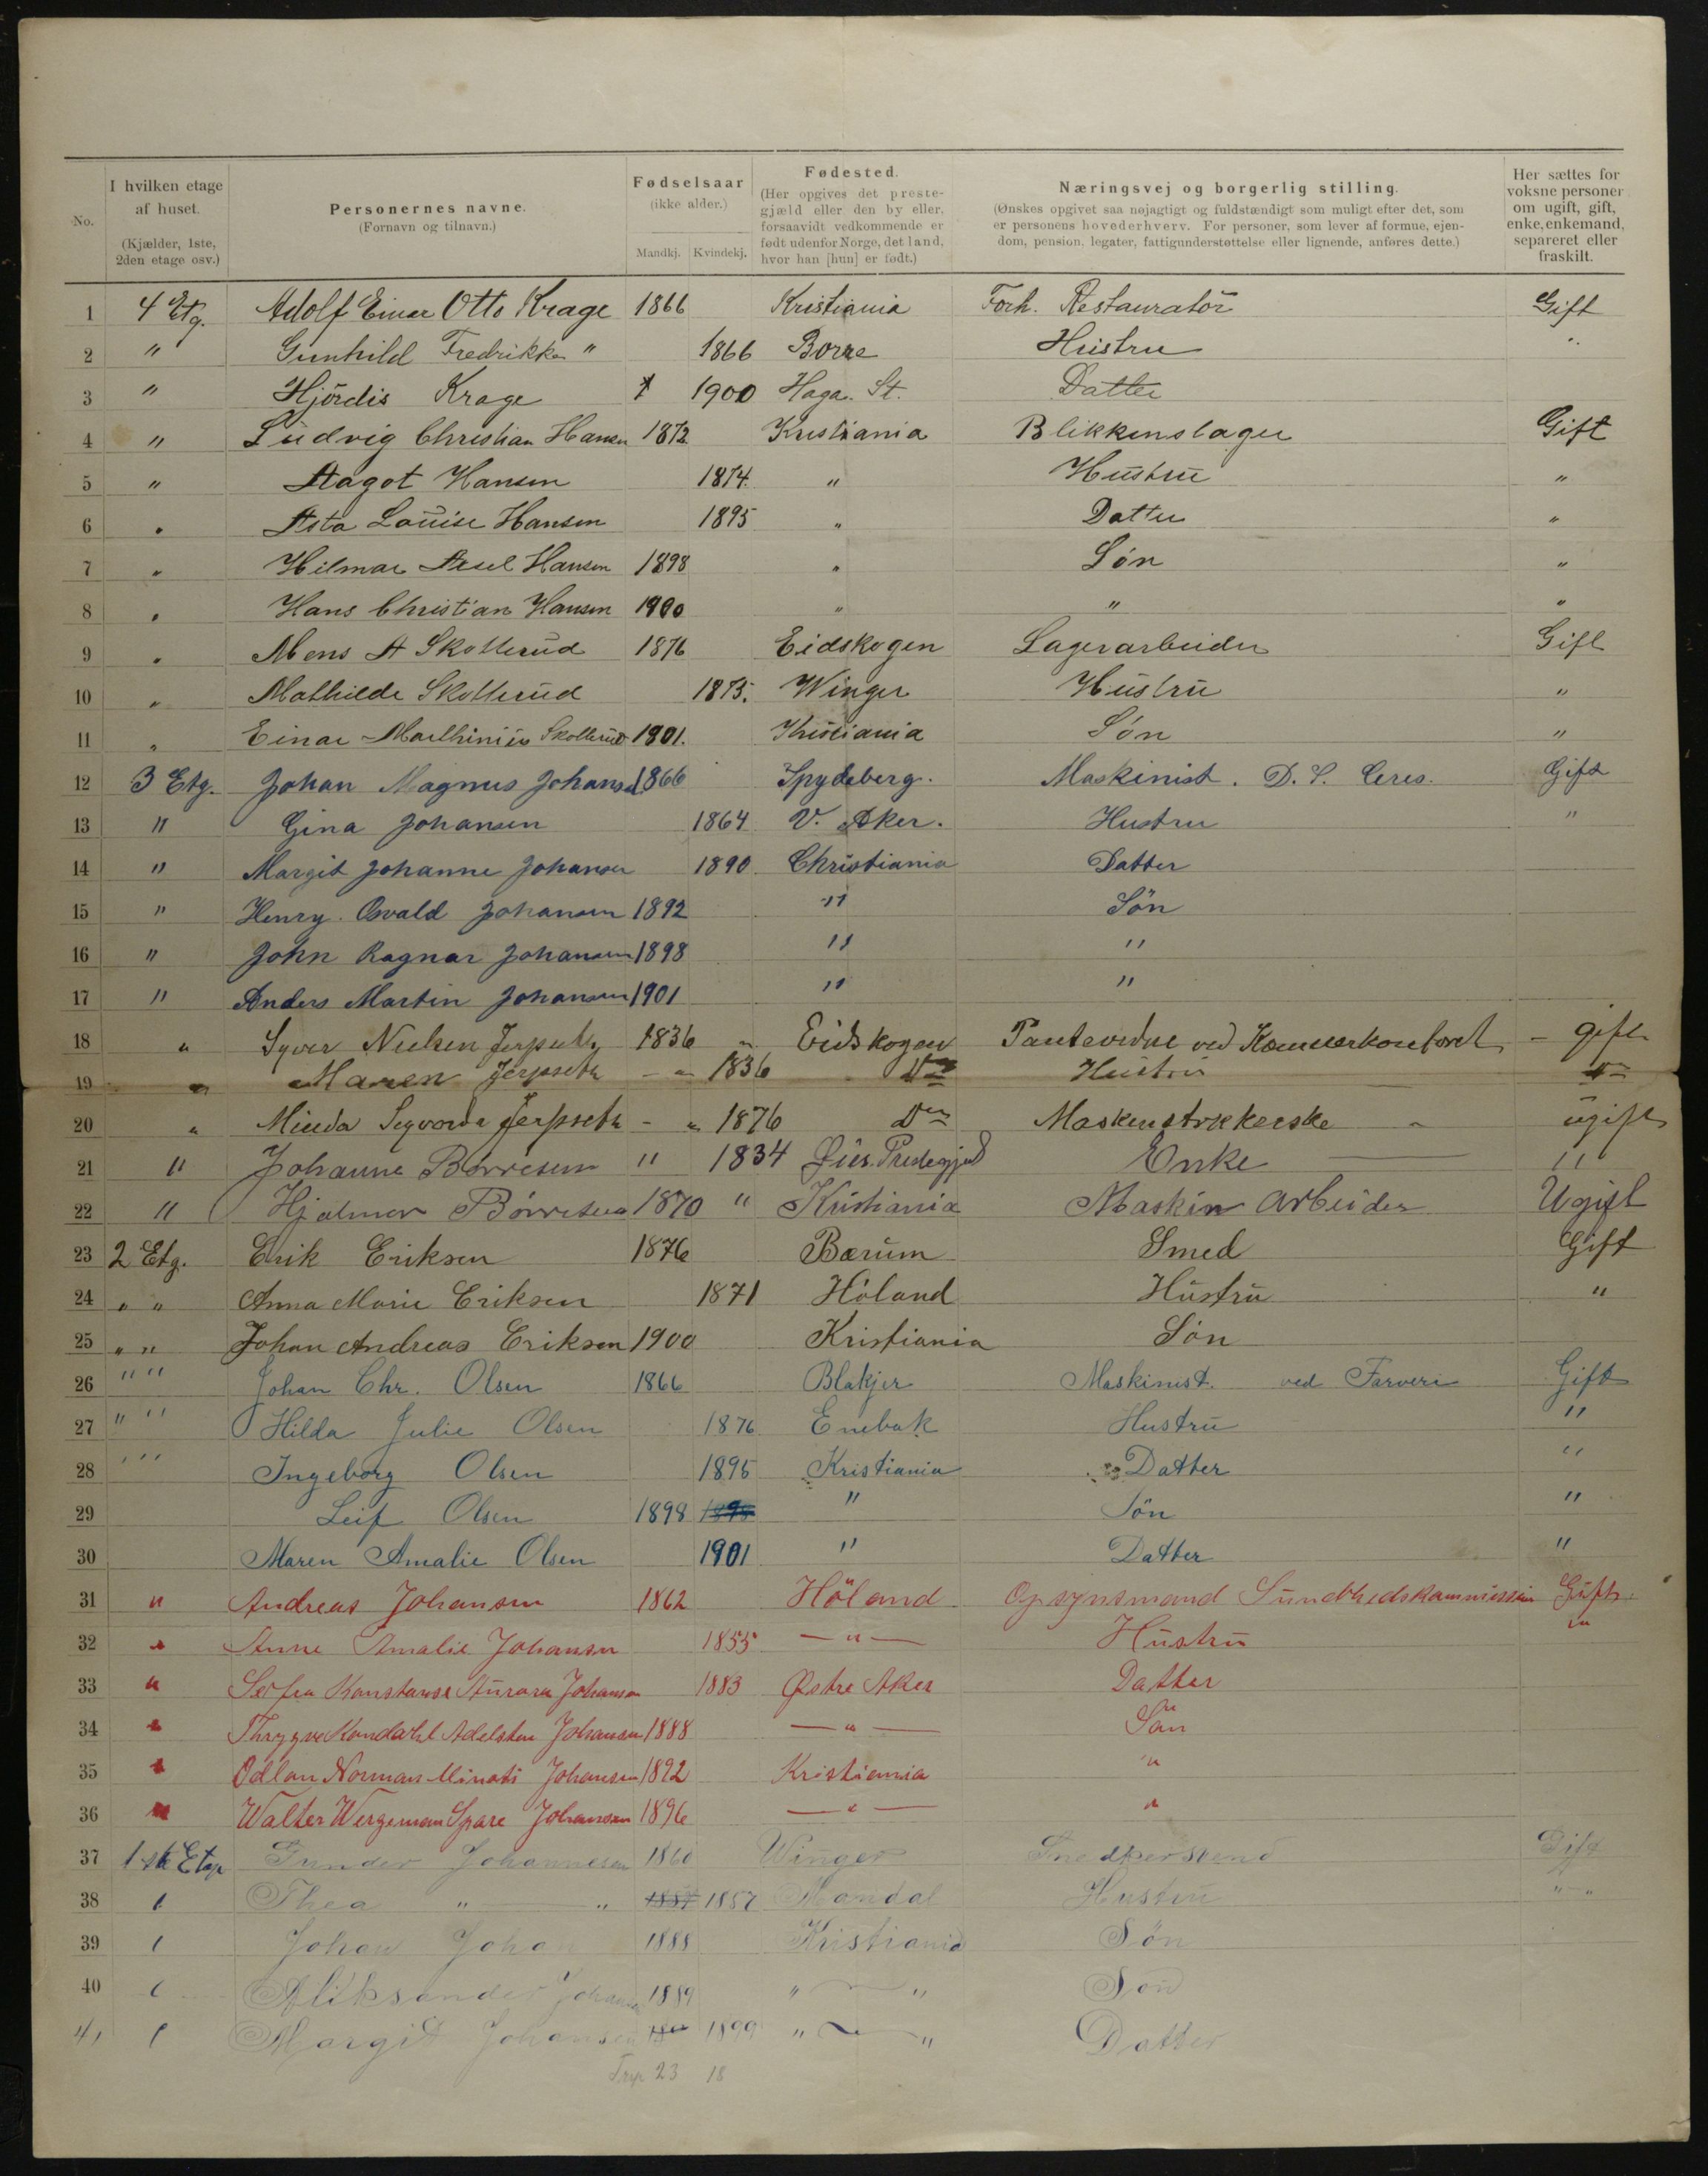 No. | I hvilken etage af huset. (Kjælder, 1ste, 2den etage osv.) | Personernes navne. (Fornavn og tilnavn.) | Fødselsaar (ikke alder.) Mandkj. Kvindekj. | Fødested. (Her opgives det prestegjæld eller den by eller, forsaavidt vedkommende er født udenfor Norge, det land, hvor han [hun] er født.) | Næringsvej og borgerlig stilling. (Ønskes opgivet saa nøjagtigt og fuldstændigt som muligt efter det, som er personens hovederhverv. For personer, som lever af formue, ejendom, pension, legater, fattigunderstøttelse eller lignende, anføres dette.) | Her sættes for voksne personer om ugift, gift, enke, enkemand, separeret eller fraskilt.
1 4 Etg. Adolf Einar Otto Krage 1866 Kristiania Forh. Restauratör Gift
2 " Gunhild Fredrikke " 1866 Borre Hustru "
3 " Hjördis Krage 1900 Haga. St. Datter
4 " Ludvig Christian Hansen 1872 Kristiania Blikkenslager Gift
5 " Aagot Hansen 1874. " Hustru "
6 " Asta Louise Hansen 1895 " Datter "
7 " Hilmar Axel Hansen 1898 " Søn "
8 " Hans Christian Hansen 1900 " " "
9 " Mons A Skotterud 1876 Eidskogen Lagerarbeider Gift
10 " Mathilde Skotterud 1875. Winger Hustru "
11 " Einar Marthinius Skotterud 1901. Kristiania Søn "
12 3 Etg. Johan Magnus Johansen 1866 Spydeberg. Maskinist. D. S. Ceres. Gift
13 " Gina Johansen 1864 V. Aker. Hustru "
14 " Margit Johanne Johansen 1890 Christiania Datter
15 " Henry. Osvald Johansen 1892 " Sön
16 " John Ragnar Johansen 1898 " "
17 " Anders Martin Johansen 1901 " "
18 " Syver Nielsen Jerpseth 1836 " Eidskogen Panteovdne ved Kæmnerkontoret - gift
19 " Maren Jerpseth - " 1836 Do Hustru Do
20 " Minda Jerpseth - " 1876 Do Maskinstrikkerske - ugift
21 " Johanne Börresen " 1834 Enke "
22 " Hjalmar Börresen 1870 " Kristiania Maskin Arbeider Ugift
23 2 Etg. Erik Eriksen 1876 Bærum Smed Gift
24 " " Anna Marie Eriksen 1871 Höland Hustru "
25 " " Johan Andreas Eriksen 1900 Kristiania Sön
26 " " Johan Chr. Olsen 1866 Blakjer Maskinist. ved Farveri Gift
27 " " Hilda Julie Olsen 1876 Enebak Hustru "
28 " " Ingeborg Olsen 1895 Kristiania Datter "
29 Leif Olsen 1898 1898 " Sön "
30 Maren Amalie Olsen 1901 " Datter "
31 " Andreas Johansen 1862 Höland Opsynsmand Sundhedskommission Gift.
32 " Anne Amalie Johansen 1855 —"— Hustru "
33 " Konstanse Aurora Johansen 1883 Østre Aker Datter
34 " Adelsten Johansen 1888 —"— Sön
35 " Odlan Norman Minati Johansen 1892 Kristiania "
36 " Walter Wergeman Spare Johansen 1896 —"— "
37 1ste Etg Gunder Johannesen 1860 Winger Snedkersvend Gift
38 " Thea " — " 1857 1857 Mandal Hustru " "
39 " Johan Johan 1888 Kristiania Sön
40 " Aliksander Johansen 1889 " — " Søn
41 " Margit Johansen 1899 " — " Datter
23 18